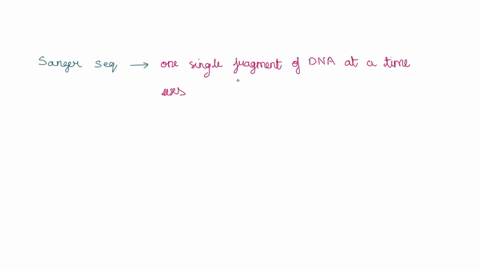 Sanger seq → one single fragment of DNA at a time